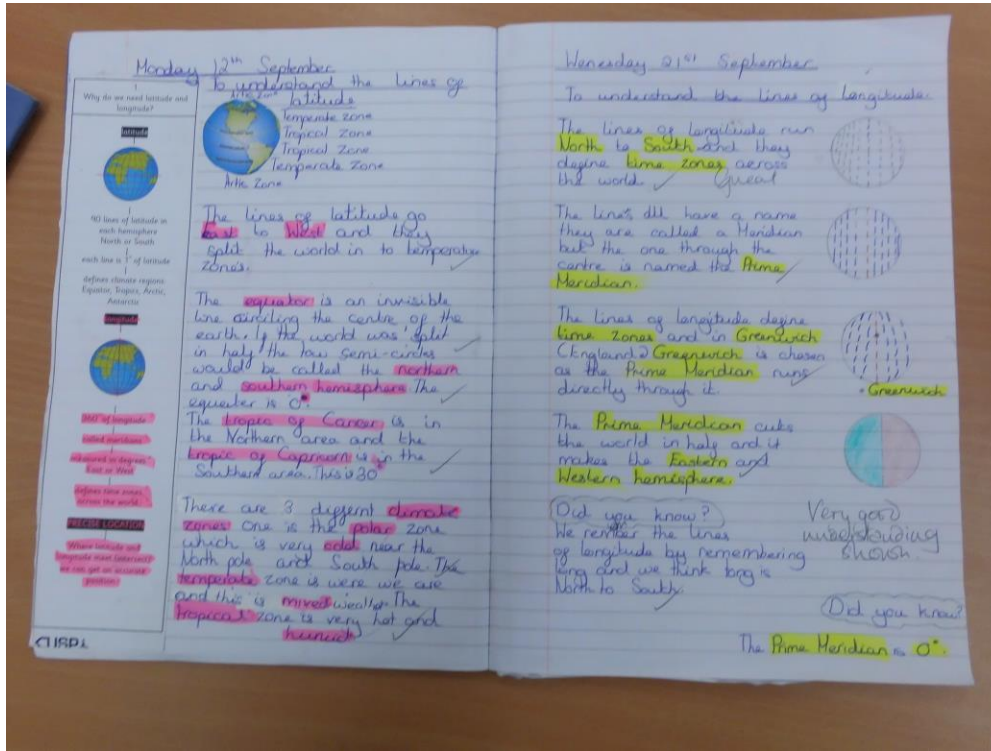 Monday 12th September
To understand the lines of
latitude
Why do we need latitude and
longitude?
latitude
90 lines of latitude in
each hemisphere
North or South
each line is 1° of latitude
defines climate regions
Equator, Tropics, Arctic,
Antarctic
longitude
360° of longitude
called meridians
measured in degrees
East or West
defines time zones
across the world
PRECISE LOCATION
Where latitude and
longitude meet (intersect)
we can get an accurate
position
Artic Zone
Temperate zone
Tropical Zone
Tropical Zone
Temperate Zone
Artic Zone
The lines of latitude go
East to West and they
split the world in to temperature
zones.
The equator is an invisible
line circling the centre of the
earth. If the world was split
in half the tow semi-circles
would be called the northern
and southern hemisphere The
equater is 0°.
The tropic of Cancer is in
the Northern area and the
tropic of Capricorn is in the
Southern area. This is 30°
There are 3 diffrent climate
zones One is the polar zone
which is very cold near the
North pole and South pole. The
temperate zone is were we are
and this is mixed weather The
tropical zone is very hot and
humid
Wenesday 21st September
To understand the lines of longitude.
The lines of longitude run
North to South and they
define time zones across
the world
Great
The lines all have a name
they are called a Meridian
but the one through the
centre is named the Prime
Meridian.
The lines of longitude define
time zones and in Greenwich
(England) Greenwich is chosen
as the Prime Meridian runs
directly through it.
Greenwich
The Prime Meridian cuts
the world in half and it
makes the Eastern and
Western hemisphere.
Did you know?
We rember the lines
of longitude by remembering
long and we think long is
North to South
Very good
understanding
shown.
Did you know?
The Prime Meridian is 0°.